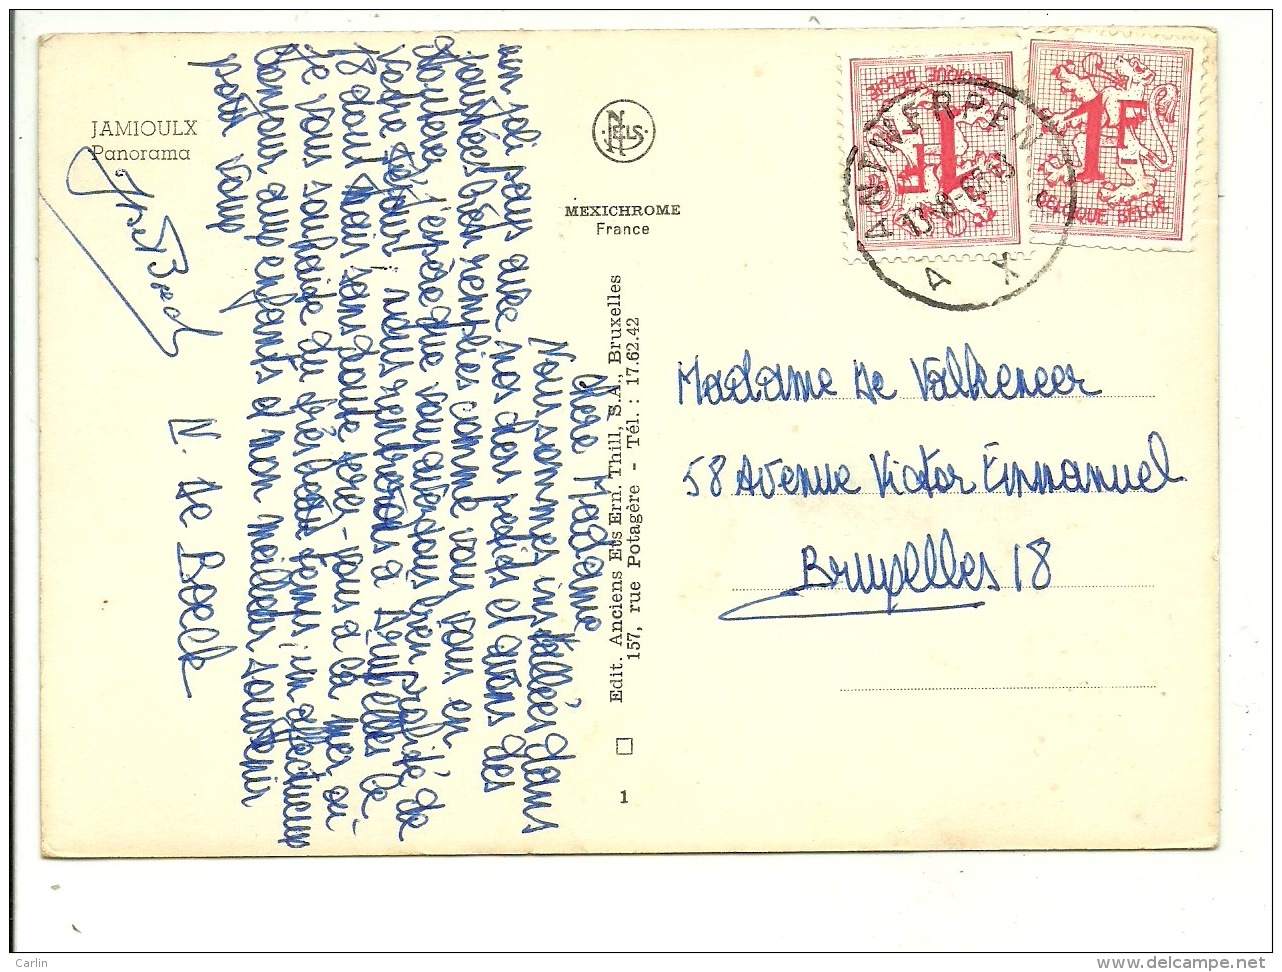 JAMIOULX
Panorama
NELS
MEXICHROME
France
ANTWERPEN
A X
BELGIQUE BELGIE
1F
BELGIQUE BELGIE
1F
Edit. Anciens Ets Ern. Thill, S.A., Bruxelles
157, rue Potagère - Tél. : 17.62.42
1
Chère Madame
Nous sommes installées dans
un joli pays avec nos chers petits et avons des
journées bien remplies comme vous vous en
doutez. J'espère que vous avez tous bien profité de
votre séjour ! nous rentrons à Bruxelles le
18 août mais sans doute serez-vous à la mer où
je vous souhaite du très beau temps, un affectueux
bonjour aux enfants et mon meilleur souvenir
pour vous
N. De Boeck
Madame De Valkeneer
58 Avenue Victor Emmanuel
Bruxelles 18
Carlin
delcampe.net